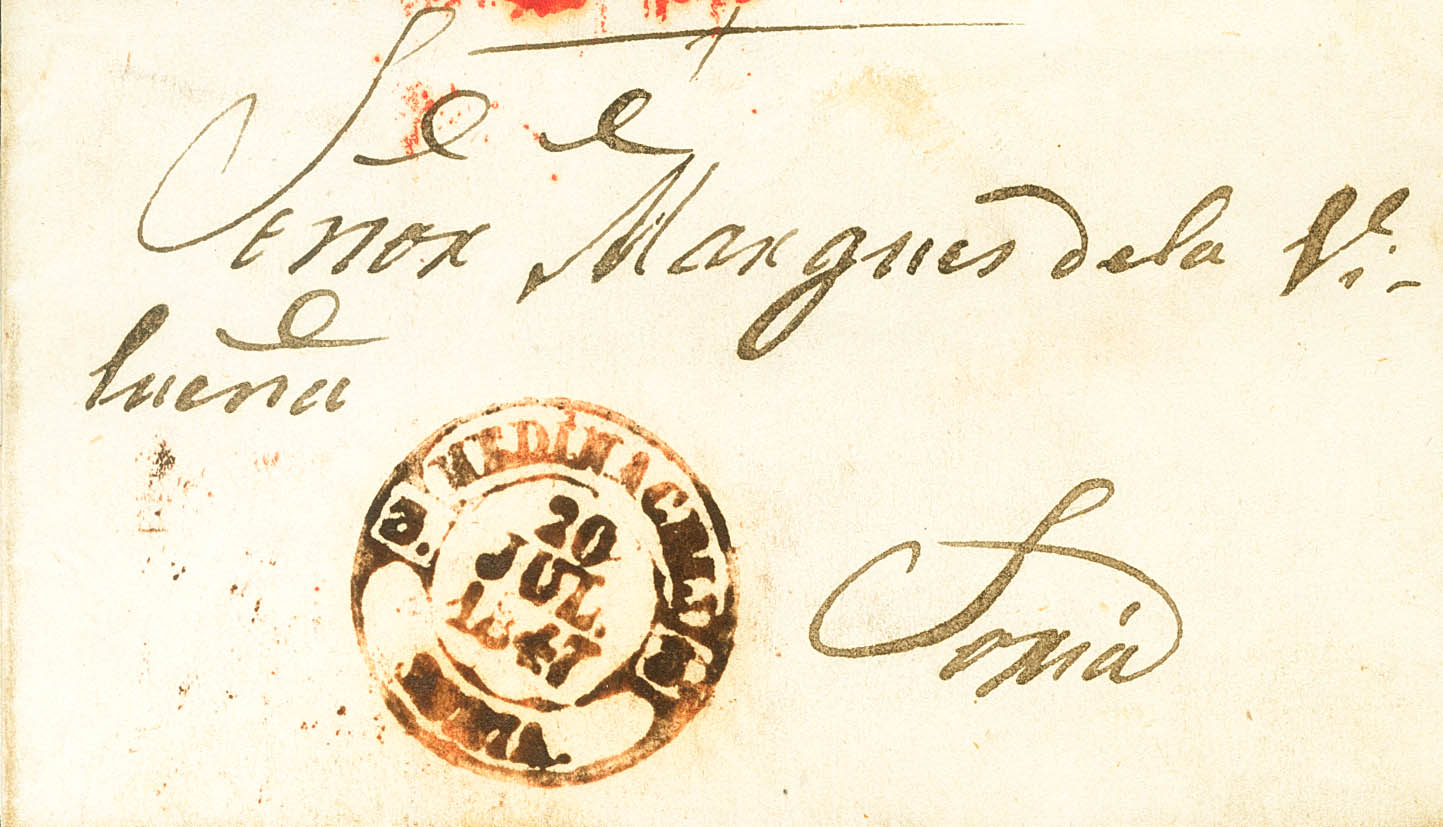 Señor Marques dela Vi-
lueña
MEDINACELI
20
JUL.
1847
SORIA.
Soria